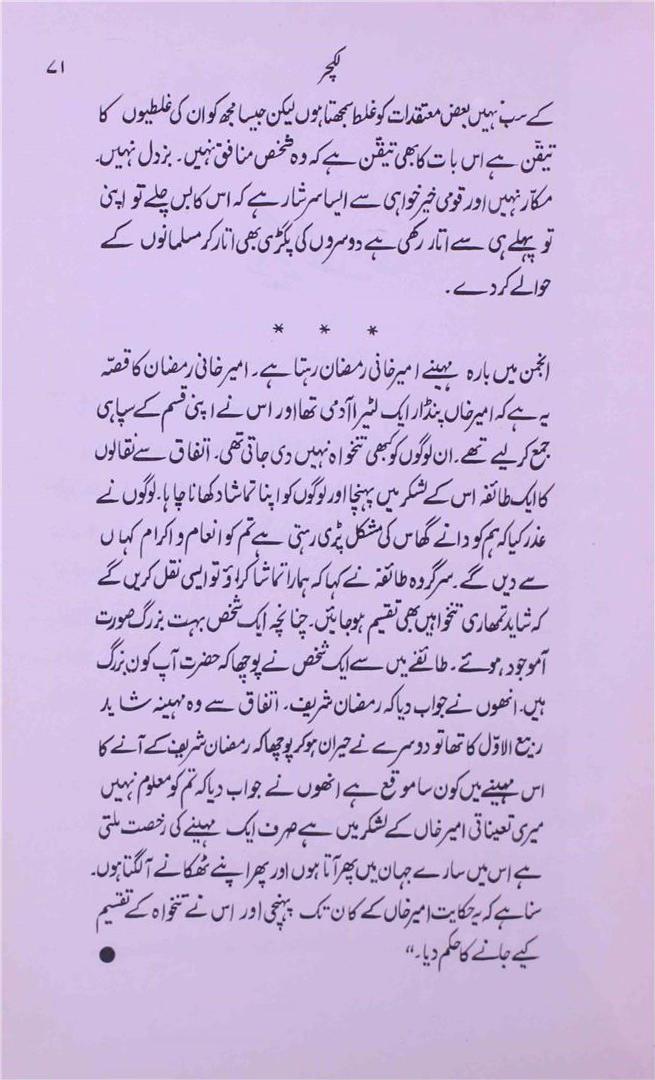 لکچر ۷۱
کے سب نہیں بعض معتقدات کو غلط سمجھتا ہوں لیکن جیسا مجھ کو ان کی غلطیوں کا
تیقّن ہے اس بات کا بھی تیقّن ہے کہ وہ شخص منافق نہیں۔ بزدل نہیں۔
مکّار نہیں اور قومی خیر خواہی سے ایسا سرشار ہے کہ اس کا بس چلے تو اپنی
تو پہلے ہی سے اتار رکھی ہے دوسروں کی پگڑی بھی اتار کر مسلمانوں کے
حوالے کر دے۔
* * *
انجمن میں بارہ مہینے امیر خانی رمضان رہتا ہے۔ امیر خانی رمضان کا قصّہ
یہ ہے کہ امیر خاں پنڈارا ایک لٹیرا آدمی تھا اور اس نے اپنی قسم کے سپاہی
جمع کر لیے تھے۔ ان لوگوں کو کبھی تنخواہ نہیں دی جاتی تھی۔ اتفاق سے نقالوں
کا ایک طائفہ اس کے لشکر میں پہنچا اور لوگوں کو اپنا تماشا دکھانا چاہا۔ لوگوں نے
عذر کیا کہ ہم کو دانے گھاس کی مشکل پڑی رہتی ہے تم کو انعام و اکرام کہاں
سے دیں گے۔ سرگروہ طائفہ نے کہا کہ ہمارا تماشا کراؤ تو ایسی نقل کریں گے
کہ شاید تمھاری تنخواہیں بھی تقسیم ہو جائیں۔ چنانچہ ایک شخص بہت بزرگ صورت
آموجود ہوئے۔ طائفے میں سے ایک شخص نے پوچھا کہ حضرت آپ کون بزرگ
ہیں۔ انھوں نے جواب دیا کہ رمضان شریف۔ اتفاق سے وہ مہینہ شاید
ربیع الاوّل کا تھا تو دوسرے نے حیران ہو کر پوچھا کہ رمضان شریف کے آنے کا
اس مہینے میں کون سا موقع ہے انھوں نے جواب دیا کہ تم کو معلوم نہیں
میری تعیناتی امیر خاں کے لشکر میں ہے صرف ایک مہینے کی رخصت ملتی
ہے اس میں سارے جہان میں پھر آتا ہوں اور پھر اپنے ٹھکانے آ لگتا ہوں۔
سنا ہے کہ یہ حکایت امیر خاں کے کان تک پہنچی اور اس نے تنخواہ کے تقسیم
کیے جانے کا حکم دیا۔“ ●